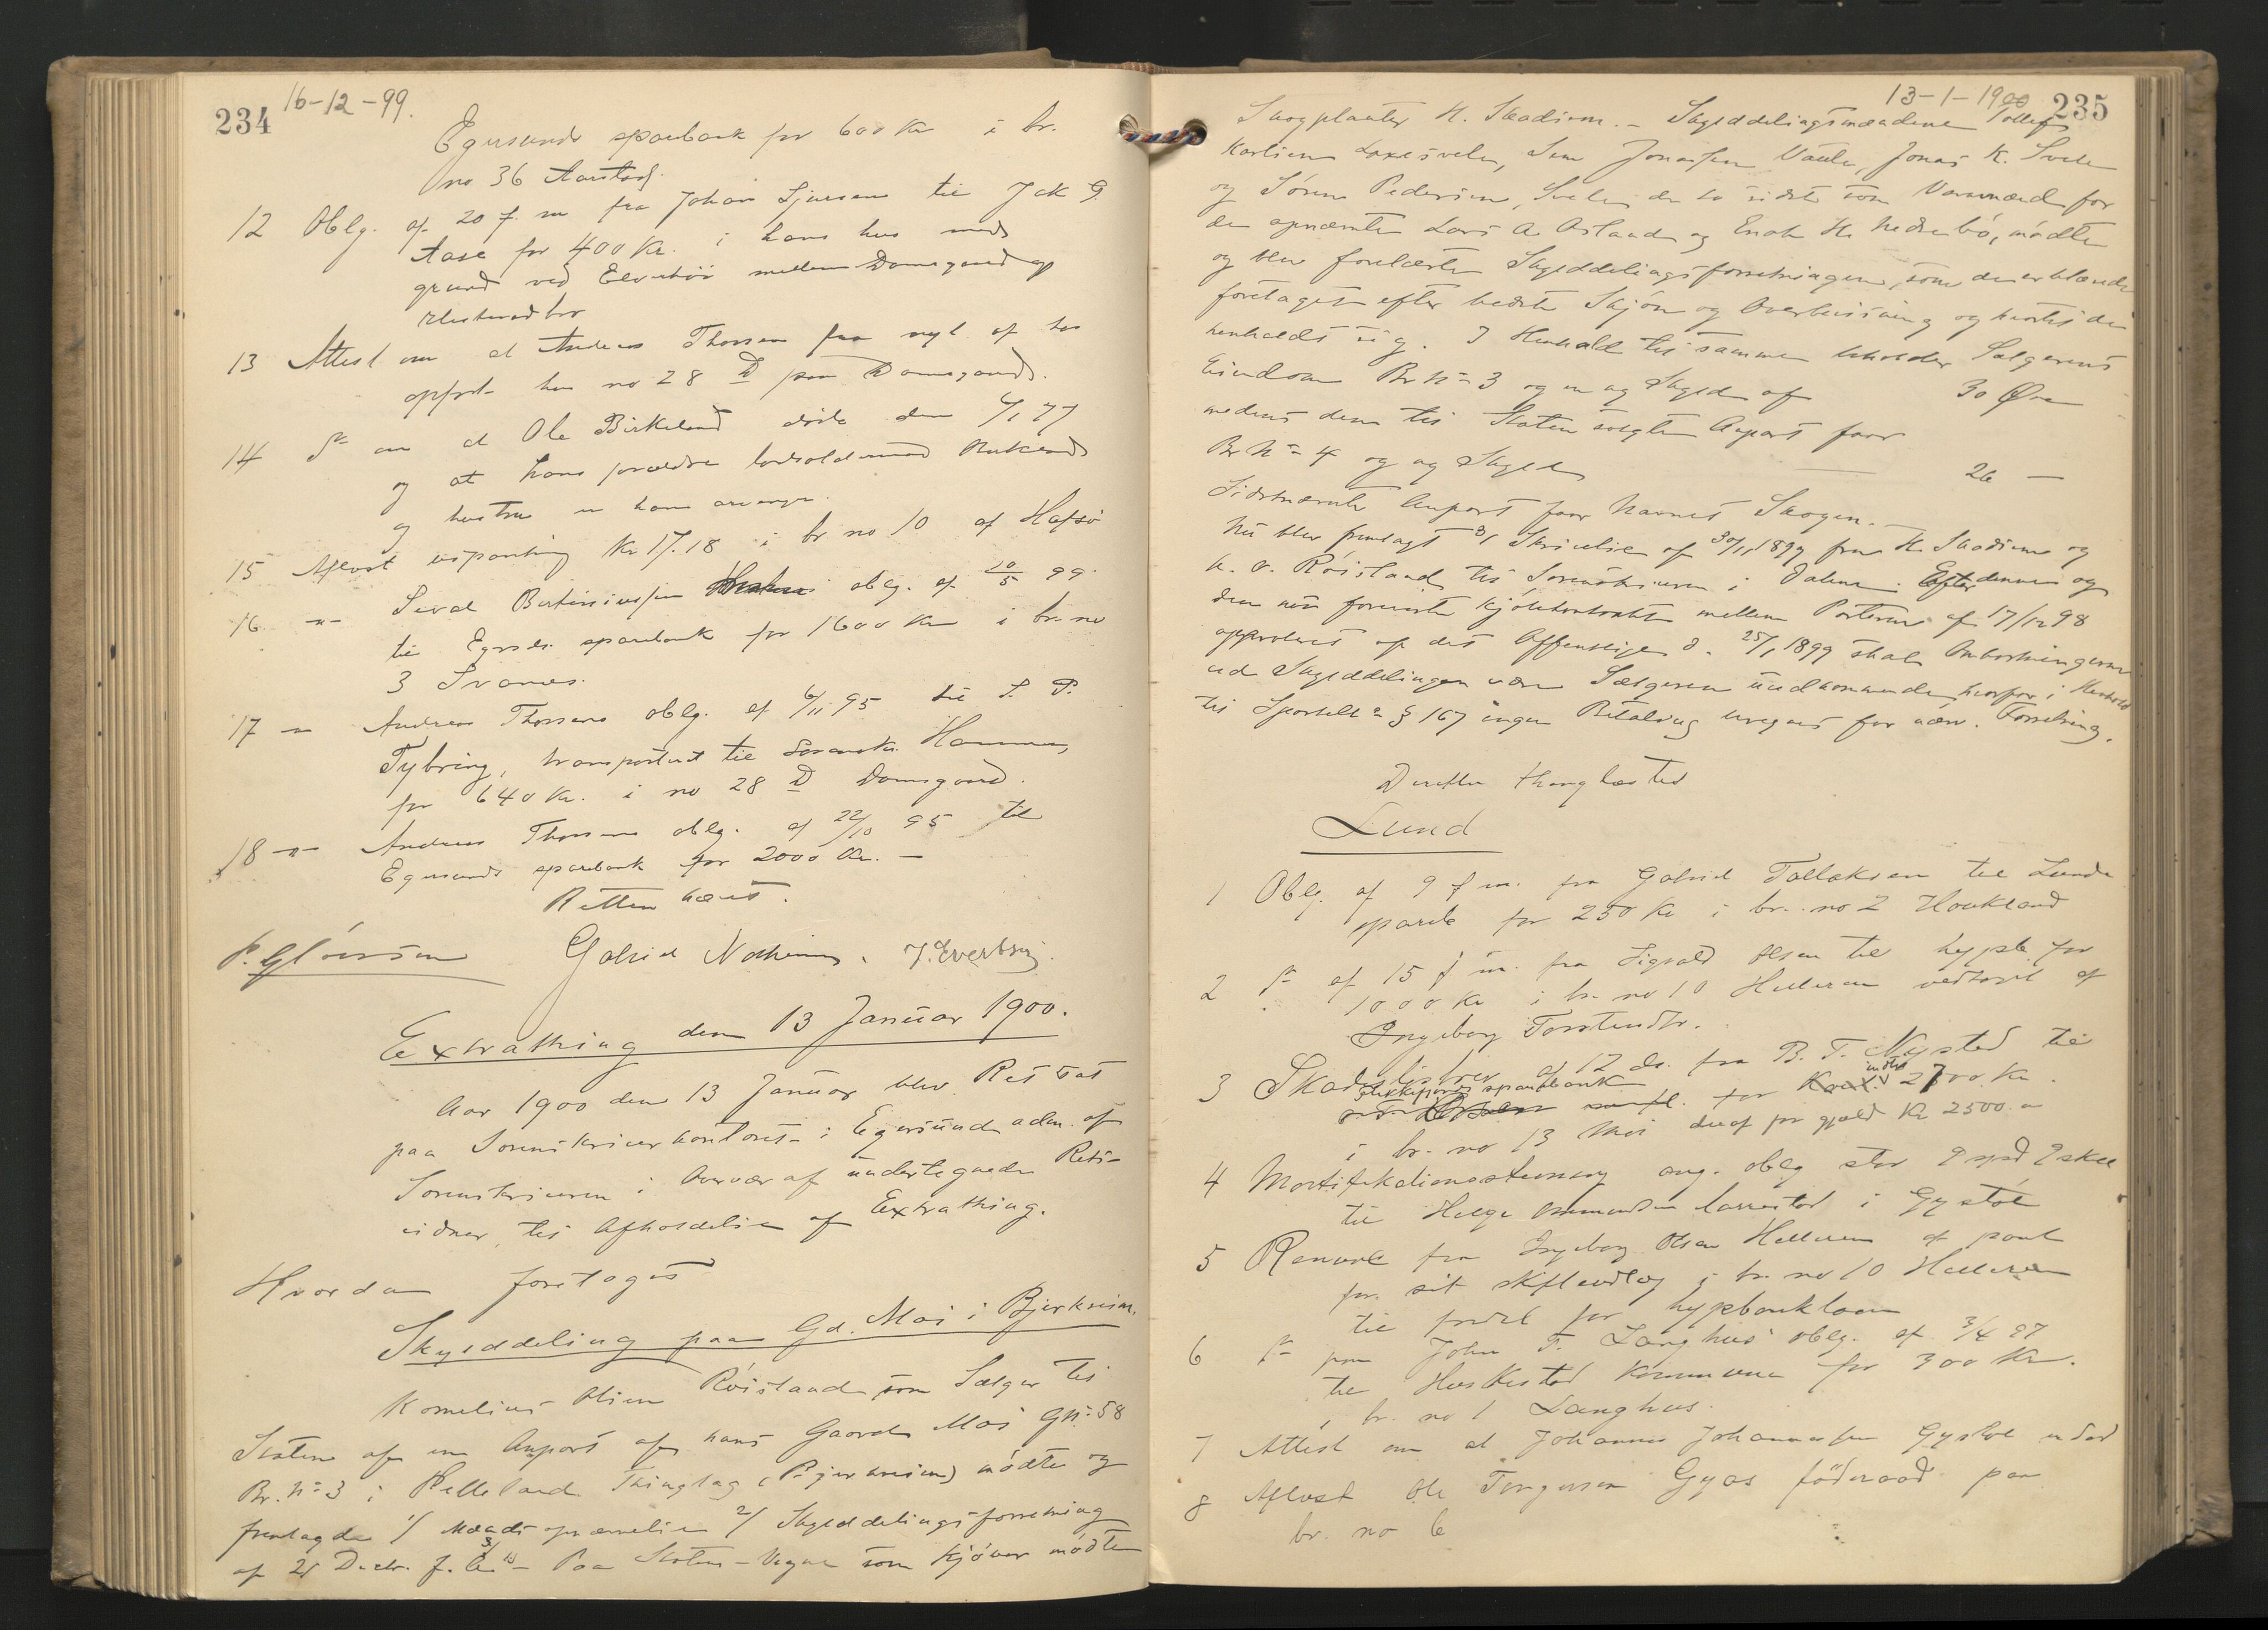 234
16-12-99.
Egersunds sparebank for 600 Kr i br.
no 36 Aarstad.
12 Oblg. af 20 f. m fra Johan Sjursen til Jak G.
Aase for 400 Kr. i hans hus med
grund ved Elvebør mellem Damsgaard og
13 Attest om at Andreas Thorsen har nyl. af
opført hus no 28 D paa Damsgaard.
14 Do om at Ole Birkeland døde den 4/1 77
og at hans forældre Birkeland
og hustru er hans arvinger.
15 Aflæst udpanting Kr 17.18 i br no 10 af Hafsø
16 -"- Sivert oblg. af 20/5 99
til Egrsds. sparebank for 1600 Kr i br. no
3 Svanes.
17 -"- Andreas Thorsens oblg. af 6/11 95 til S. P.
Tybring, transporteret til Sorenskr. Hammer,
for 640 Kr. i no 28 D Damsgaard.
18 -"- Andreas Thorsens oblg. af 22/10 95 til
Egersunds sparebank for 2000 Kr. -
Retten hævet.
Gabriel J. Evertsen.
Extrathing den 13 Januar 1900.
Aar 1900 den 13 Januar blev Ret sat
paa Sorenskriverkontoret i Egersund adm. af
Sorenskriveren i Overvær af undertegnede Rets-
vidner, til Afholdelse af Extrathing.
Hvordan foretoges
Skylddeling paa Gd. Moi i Bjerkreim.
Kornelius Olsen Røisland som Sælger til
Staten af en Anpart af hans Gaard Moi GNo 58
Br. No 3 i Helleland Thinglag (Bjerkreim) mødte og
fremlagde 1/ Mænds opnævnelse 2/ Skylddelingsforretning
af 21 Decbr. f. A. - Paa Statens Vegne som Kjøber mødte
13-1-1900 235
Skogplanter H. Skadsem. - Skylddelingsmændene Tollef
Karlsen Laxesvela, Sem Jonassen Vaule, Jonas K. Svela
og Søren Pedersen, Svela, de to sidste som Varamænd for
de opnævnte Lars A. Asland og Enok H. Nedrebø, mødte
og blev forelæst Skylddelingsforretningen, som de erklærede
foretaget efter bedste Skjøn og Overbevisning og hvortil de
henholdt sig. I Henhold til samme beholder Sælgerens
Eiendom Br No 3 og en ny Skyld af 30 Øre
medens den til Staten solgte Anpart faar
Br No 4 og ny Skyld 26 -
Sidstnævnte Anpart faar Navnet Skogen.
Nu blev fremlagt 3/ Skrivelse af 30/11 1899 fra H. Skadsem og
K. O. Røisland til Sorenskriveren i Dalene. Efter denne og
den nu foreviste Kjøbekontrakt mellem Parterne af 17/12 98
approberet af det Offentlige d. 25/1 1899 skal Omkostningerne
ved Skylddelingen være Sælgeren uvedkommende, hvorfor i Henhold
til Sportell. § 167 ingen Betaling beregnes for nærv. Forretning.
Derefter thinglæstes
Lund
1 Oblg. af 9 f m. fra Gabriel Tollaksen til Lunde
spareb. for 250 Kr i br. no 2 Haukland
2 Do af 15 f m. fra Sigvald Olsen til hypb. for
1000 Kr i br. no 10 Helleren vedtaget af
Ingeborg Torstendtr.
3 Skadesløsbrev af 12 ds. fra B. T. Nysted til
Flekkefjords sparebank for indtil 2700 Kr.
i br. no 13 Moi deraf for gjæld Kr 2500.
4 Mortifikationsstevning ang. oblg stor 9 spd 2 skil
til Helge i Gystøl
5 Renonce fra Ingeborg Olsen Helleren af pant
for sit skifteudlæg i br. no 10 Helleren
til fordel for hypbanklaan
6 Do fra John T. Langhus' oblg. af 3/4 97
til Heskestad Kommune for 300 Kr.
i br. no 1 Langhus.
7 Attest om at Johannes Johannessen Gystøl er død
8 Aflæst Ole Torgersen Gyas føderaad paa
br. no 6